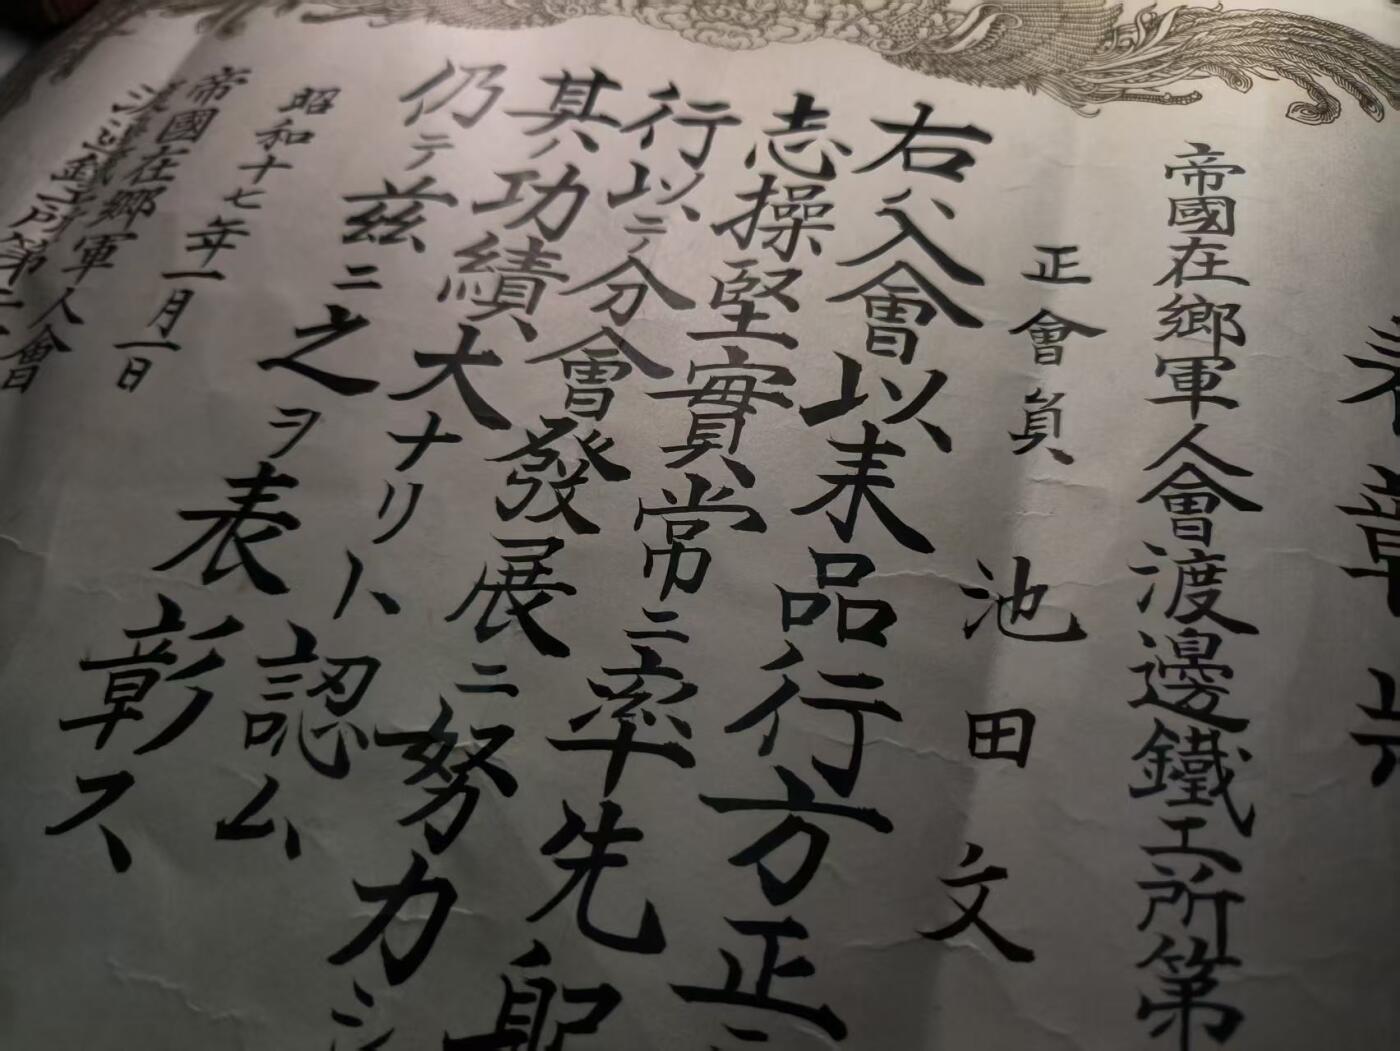 帝國在鄉軍人會渡邊鐵工所第
正會員 池田文
右ハ入會以来品行方正ニ
志操堅實常ニ率先躬
行以テ分會發展ニ努力シ
其ノ功績大ナリト認ム
仍テ茲ニ之ヲ表彰ス
昭和十七年一月一日
帝國在鄉軍人會
渡邊鐵工所第二